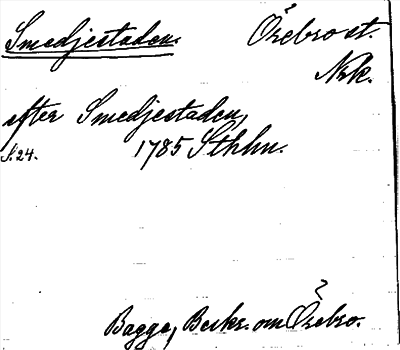 Smedjestaden. Örebro st.
Nrk.
efter Smedjestaden,
S. 24. 1785 Sthlm.
Bagge, Beskr. om Örebro.